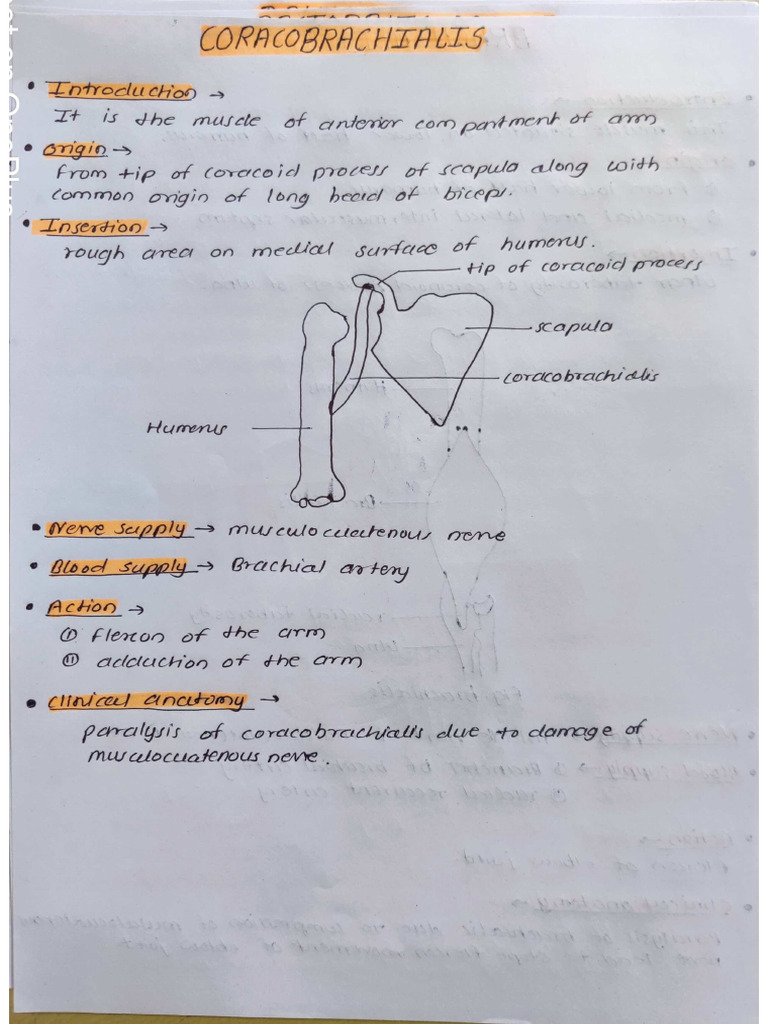 CORACOBRACHIALIS
• Introduction →
It is the muscle of anterior compartment of arm
• Origin →
from tip of coracoid process of scapula along with
common origin of long head of biceps.
• Insertion →
rough area on medial surface of humerus.
tip of coracoid process
scapula
coracobrachialis
Humerus
• Nerve supply → musculocuatenous nerve
• Blood supply → Brachial artery
• Action →
(i) flexon of the arm
(ii) adduction of the arm
• clinical anatomy →
paralysis of coracobrachialis due to damage of
musculocuatenous nerve.